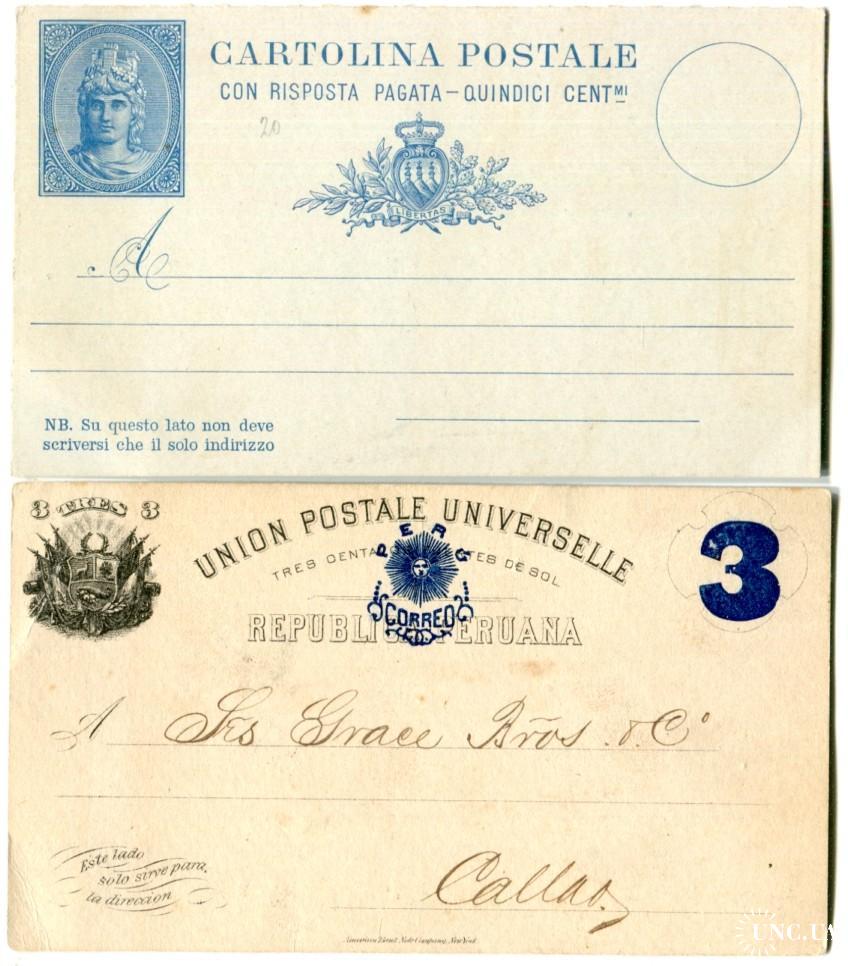 CARTOLINA POSTALE
CON RISPOSTA PAGATA — QUINDICI CENTMI
20
LIBERTAS
A
NB. Su questo lato non deve
scriversi che il solo indirizzo
3 TRES 3
UNION POSTALE UNIVERSELLE
TRES CENTA TES DE SOL
REPUBLI ERUANA
PERU
CORREO
3
A Srs Grace Bros. & Co
Este lado
solo sirve para
la direccion
Callao
American Bank Note Company, New York
UNC.UA